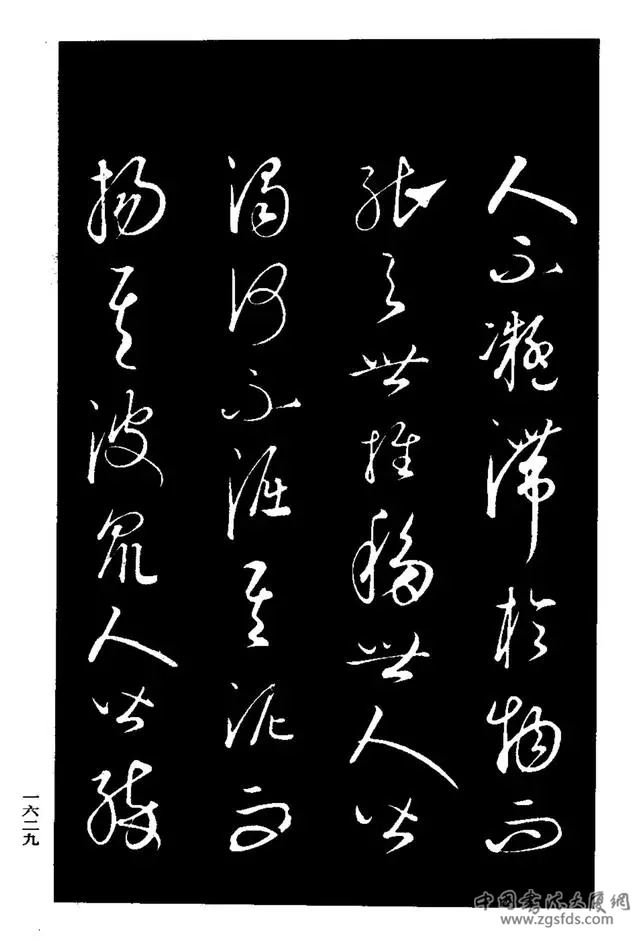 人不凝滯於物而
能與世推移世人皆
濁何不淈其泥而
揚其波眾人皆醉
一六二九
中國書法大厦網
www.zgsfds.com